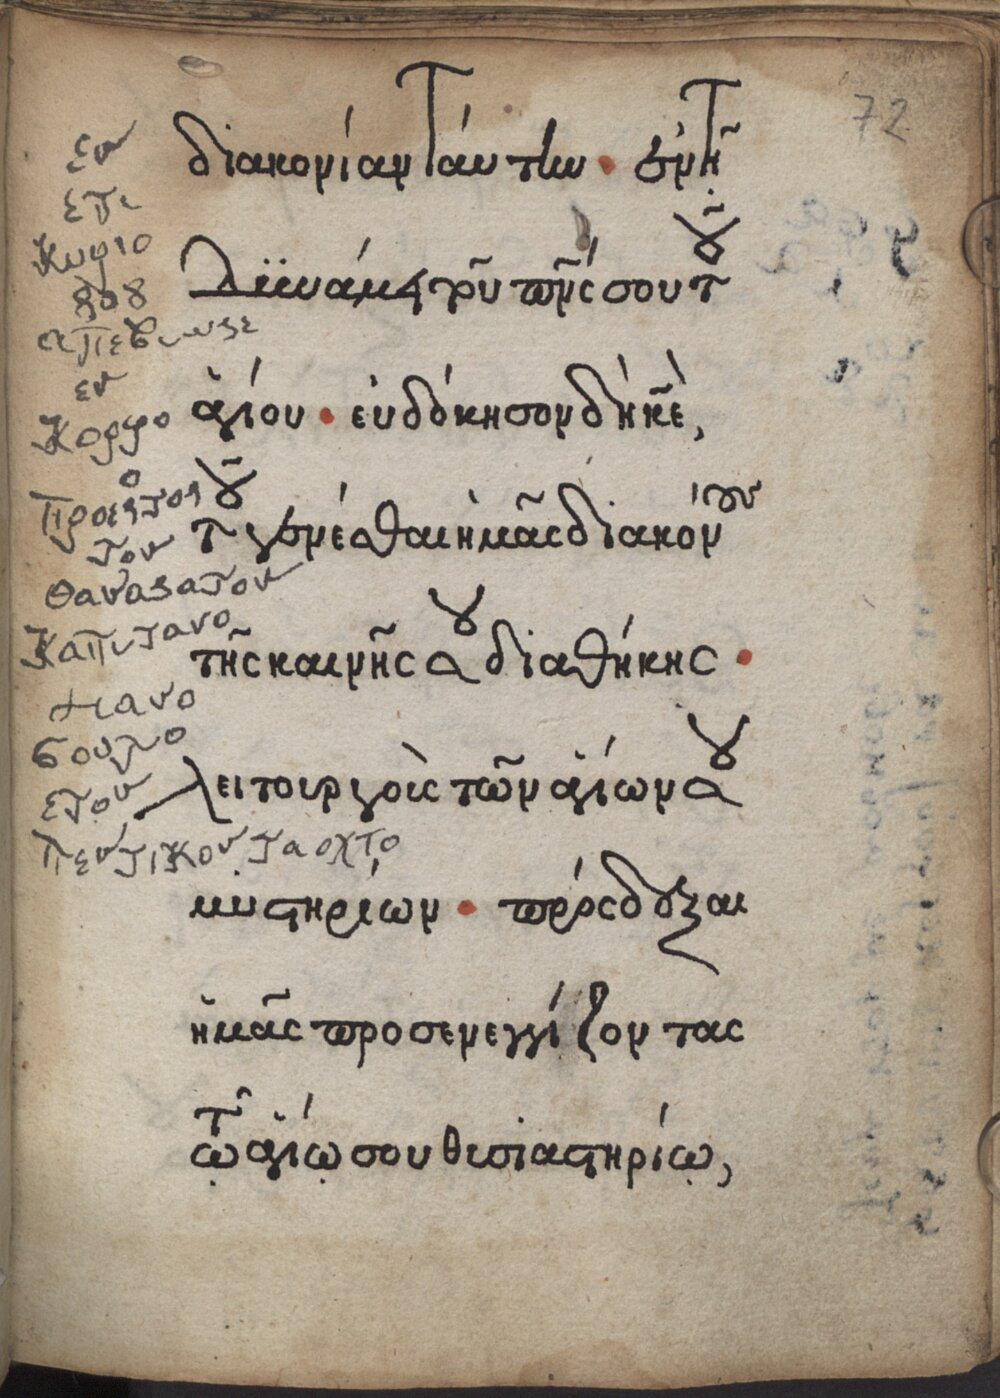 72
διακονίαν ταύτην · ἐν τῇ
δυνάμει τοῦ πνς σου τοῦ
ἁγίου · εὐδόκησον δὴ κε,
τοῦ γενέσθαι ἡμᾶς διακόνους
τῆς καινῆς σου διαθήκης ·
λειτουργοὺς τῶν ἁγίων σου
μυστηρίων · πρόσδεξαι
ἡμᾶς προσενεγγίζοντας
τῷ ἁγίῳ σου θυσιαστηρίῳ,
εν
ετι
Κυριο
απεβιωσε
εν
Κορφο
ο
προεστος
τον
Θανασατον
Καπιτανο
μανο
σουλιο
ετον
πεντικονταοχτο